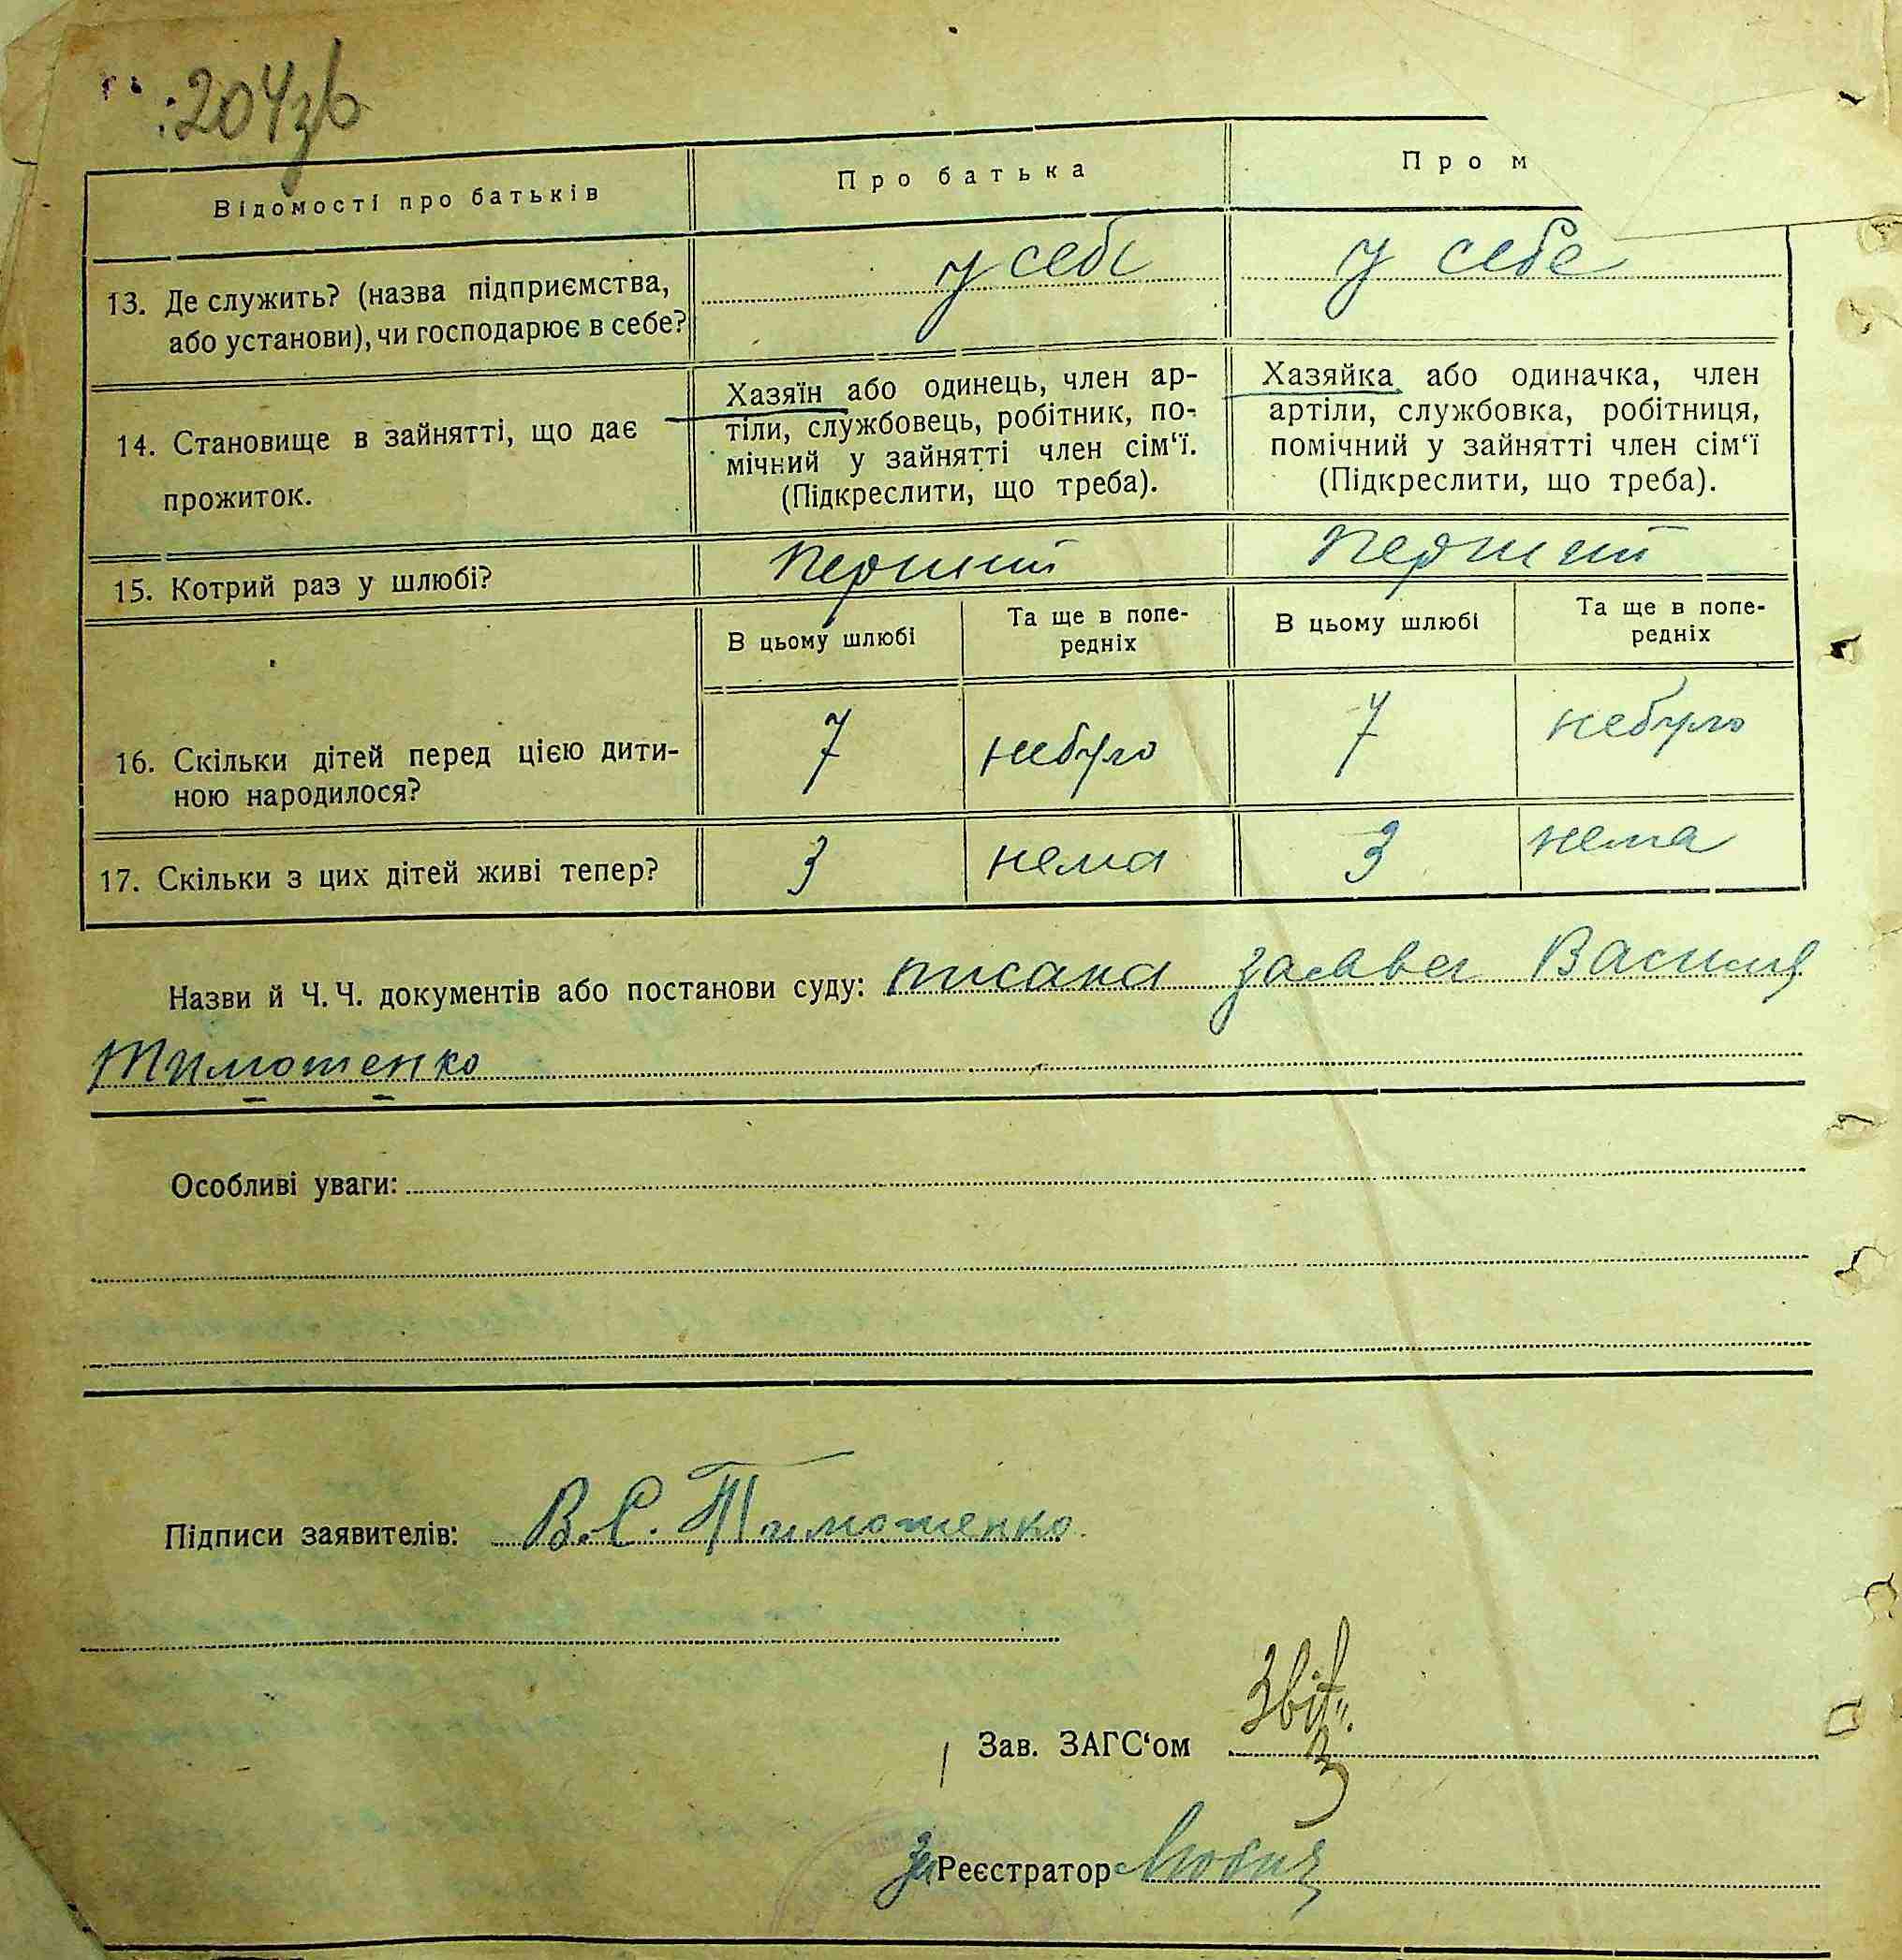 204зв
Відомості про батьків
Про батька
Про м
13. Де служить? (назва підприємства,
або установи), чи господарює в себе?
у себе
у себе
14. Становище в зайнятті, що дає
прожиток.
Хазяїн або одинець, член ар-
тіли, службовець, робітник, по-
мічний у зайнятті член сім‘ї.
(Підкреслити, що треба).
Хазяйка або одиначка, член
артіли, службовка, робітниця,
помічний у зайнятті член сім‘ї
(Підкреслити, що треба).
15. Котрий раз у шлюбі?
перший
перший
В цьому шлюбі
Та ще в попе-
редніх
В цьому шлюбі
Та ще в попе-
редніх
16. Скільки дітей перед цією дити-
ною народилося?
7
небуло
7
небуло
17. Скільки з цих дітей живі тепер?
3
нема
3
нема
Назви й Ч. Ч. документів або постанови суду: писана заява Василя
Тимошенко
Особливі уваги:
Підписи заявителів: В.С. Тимошенко
Зав. ЗАГС‘ом
за Реєстратор